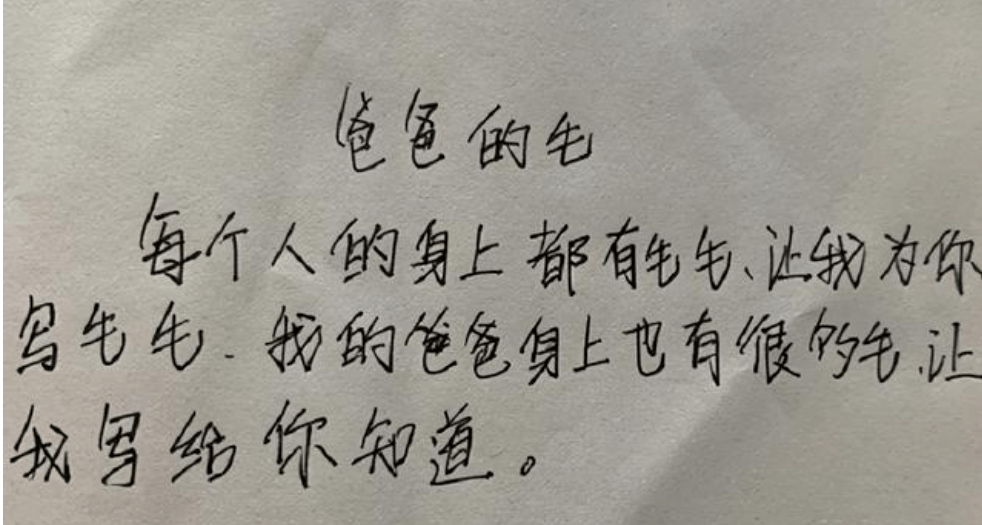 爸爸的毛
每个人的身上都有毛毛、让我为你
写毛毛. 我的爸爸身上也有很多毛.让
我写给你知道。